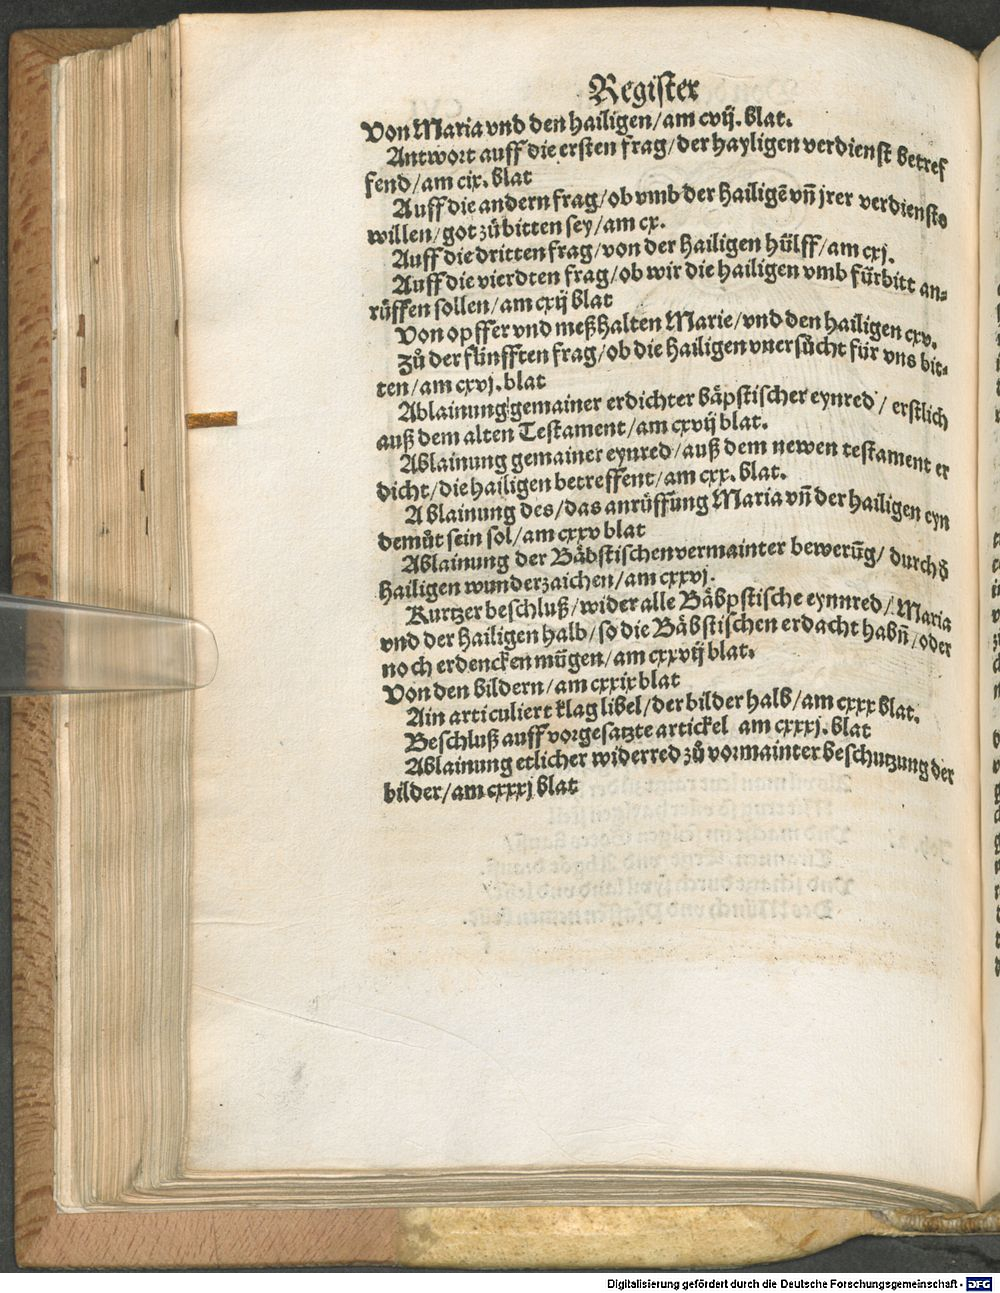 Register
Von Maria vnd den hailigen/am cvij. blat.
Antwort auff die ersten frag/der hayligen verdienst betref
fend/am cix. blat
Auff die andern frag/ob vmb der hailigẽ vñ jrer verdiensts
willen/got zůbitten sey/am cx.
Auff die dritten frag/von der hailigen hülff/am cxj.
Auff die vierdten frag/ob wir die hailigen vmb fürbitt an⸗
rüffen sollen/am cxij blat
Von opffer vnd meßhalten Marie/vnd den hailigen cxv.
Zů der fünfften frag/ob die hailigen vnersůcht für vns bit⸗
ten/am cxvj. blat
Ablainung gemainer erdichter bäpstischer eynred/ erstlich
auß dem alten Testament/am cxvij blat.
Ablainung gemainer eynred/auß dem newen testament er
dicht/die hailigen betreffent/am cxx. blat.
Ablainung des/das anrüffung Maria vñ der hailigen eyn
demůt sein sol/am cxxv blat
Ablainung der Bäbstischen vermainter bewerũg/ durch d̃
hailigen wunderzaichen/am cxxvj.
Kurtzer beschluß/wider alle Bäbpstische eynnred/Maria
vnd der hailigen halb/so die Bäbstischen erdacht habñ/oder
noch erdencken mügen/am cxxvij blat.
Von den bildern/am cxxix blat
Ain articuliert klag libel/der bilder halb/am cxxx blat.
Beschluß auff vorgesatzte artickel am cxxxj. blat
Ablainung etlicher widerred zů vormainter beschutzung der
bilder/am cxxxj blat
Digitalisierung gefördert durch die Deutsche Forschungsgemeinschaft - DFG